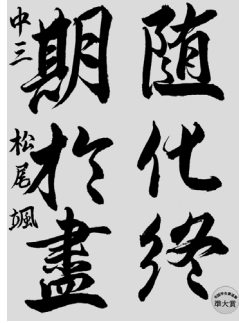 随化終
期於盡
中三 松尾颯
準大賞